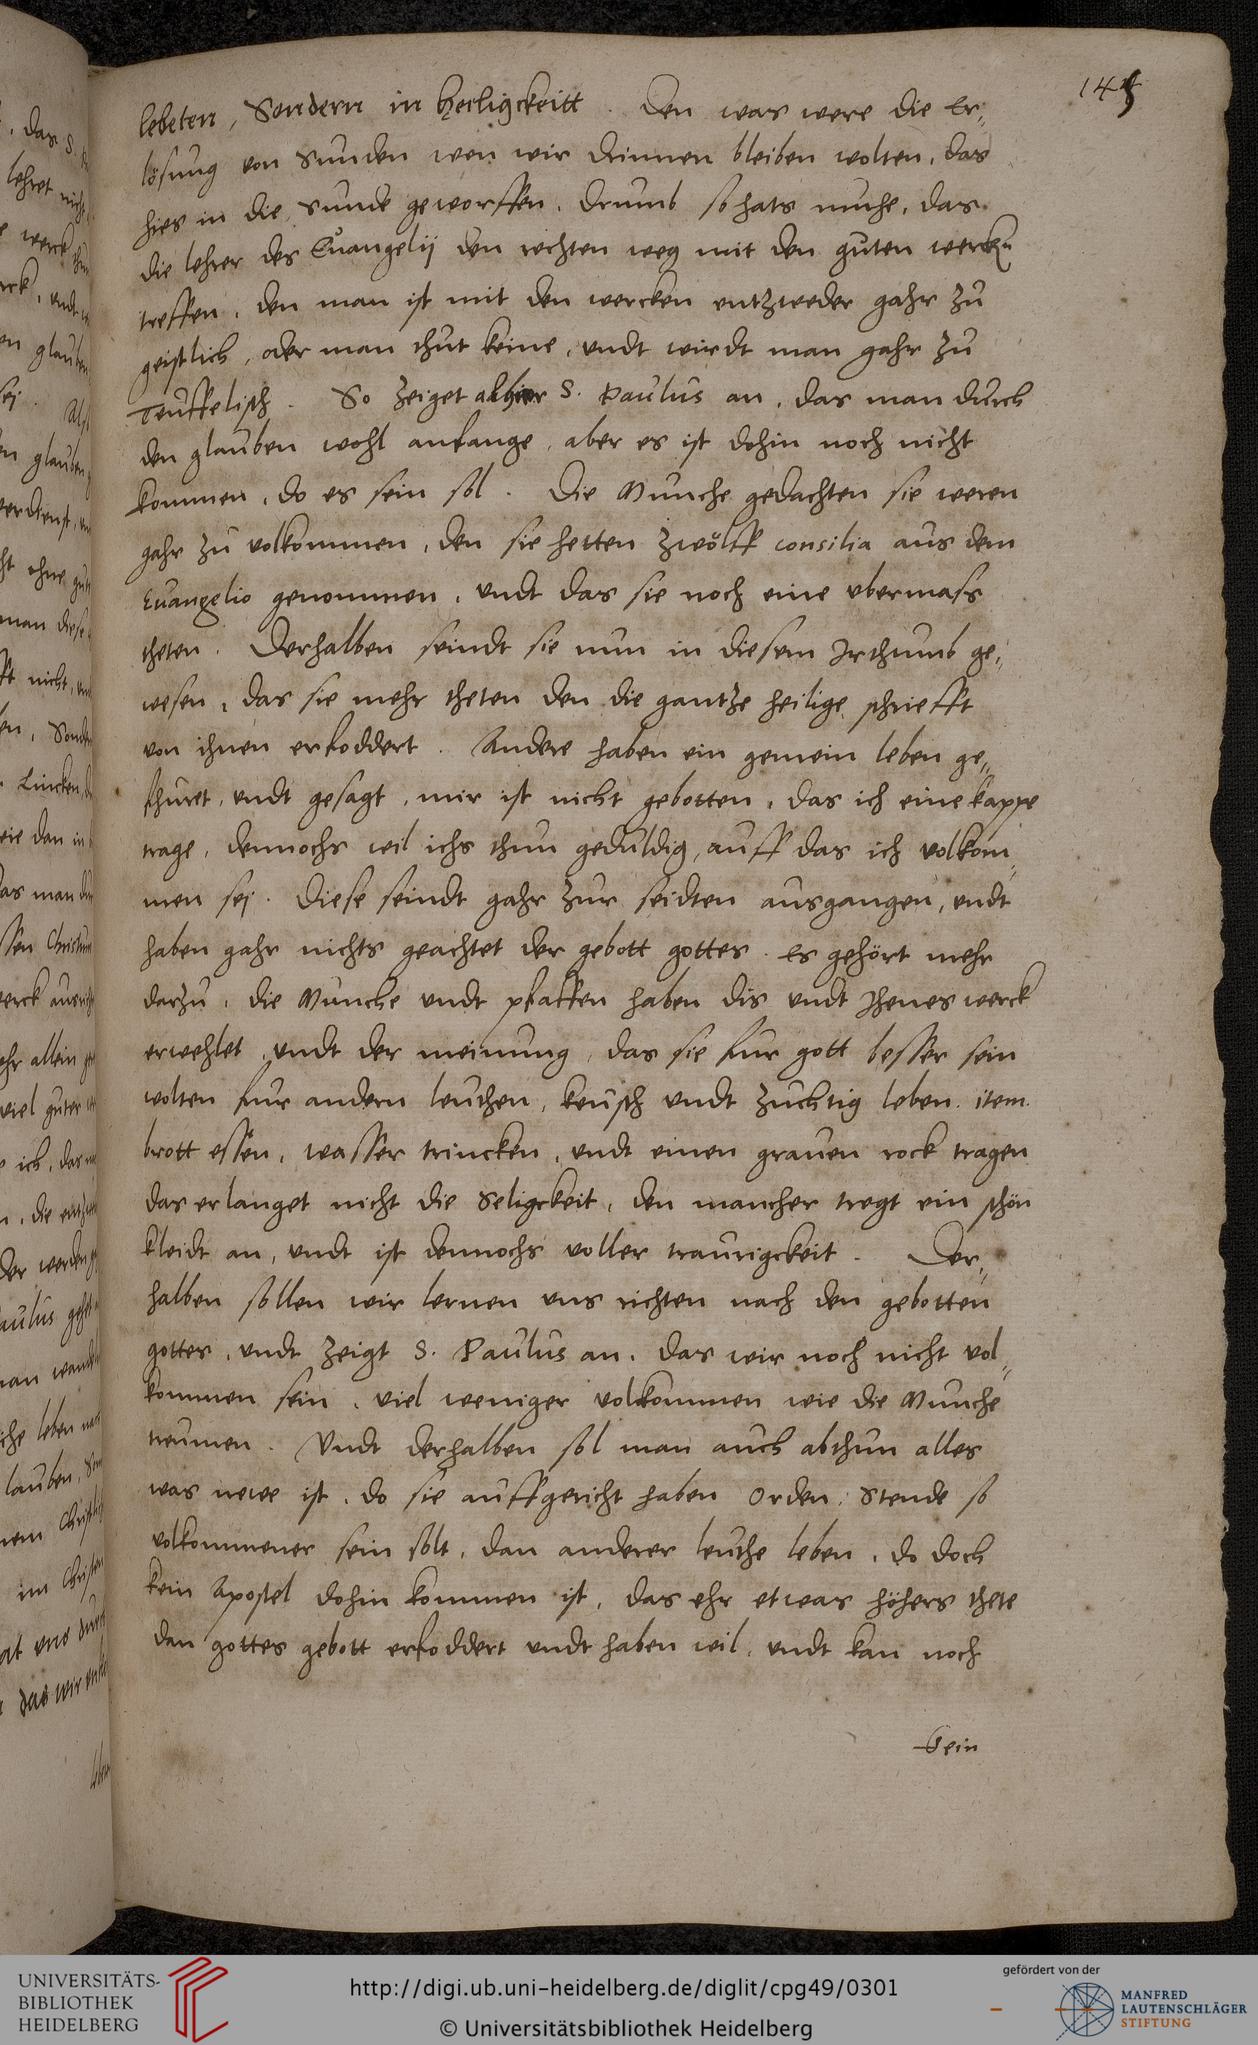 145
lebeten, Sondern in heiligckeitt. Den was were die Er,,
lösung von Sunden wen wir drinnen bleiben wolten, das
hies in die Sunde geworffen. Drumb so hats muhe, das
die lehrer des Euangelij den rechten weg mit den guten wercken
treffen, den man ist mit den wercken entzweder gahr zu
geistlich, oder man thut keine, undt wirdt man gahr zu
Teuffelisch. So zeiget alhier S. Paulus an, das man durch
den glauben wohl anfange, aber es ist dohin noch nicht
kommen, do es sein sol. Die Munche gedachten sie weren
gahr zu volkommen, den sie hetten zwölff consilia aus dem
Euangelio genommen, undt das sie noch eine ubermass
theten. Derhalben seindt sie nun in diesem Irthumb ge,,
wesen, das sie mehr theten den die gantze heilige schriefft
von ihnen erfoddert. Andere haben ein gemein leben ge,,
fhuret, undt gesagt, mir ist nicht gebotten, das ich eine kappe
trage, dennochs wil ichs thun geduldig, auff das ich volkom,,
men sej. Diese seindt gahr zur seidten ausgangen, undt
haben gahr nichts geachtet der gebott gottes. Es gehört mehr
darzu, die Munche undt pfaffen haben dis undt Ihenes werck
erwehlet, undt der meinung, das sie fur gott besser sein
wolten fur andern leuthen, keusch undt zuchtig leben. item.
brott essen, wasser trincken, undt einen grauen rock tragen
das erlanget nicht die Seligckeit, den mancher tregt ein schön
kleidt an, undt ist dennochs voller traurigckeit. Der,,
halben sollen wir lernen uns richten nach den gebotten
gottes, undt zeigt S. Paulus an, das wir noch nicht vol,,
kommen sein, viel weniger volkommen wie die Munche
treumen. Undt derhalben sol man auch abthun alles
was newe ist, do sie auffgericht haben Orden, Stende so
volkommener sein solt, dan anderer leuthe leben, do doch
kein Apostel dohin kommen ist, das ehr etwas höhers thete
dan gottes gebott erfoddert undt haben wil, undt kan noch
kein
UNIVERSITÄTS-
BIBLIOTHEK
HEIDELBERG
http://digi.ub.uni-heidelberg.de/diglit/cpg49/0301
© Universitätsbibliothek Heidelberg
gefördert von der
MANFRED
LAUTENSCHLÄGER
STIFTUNG